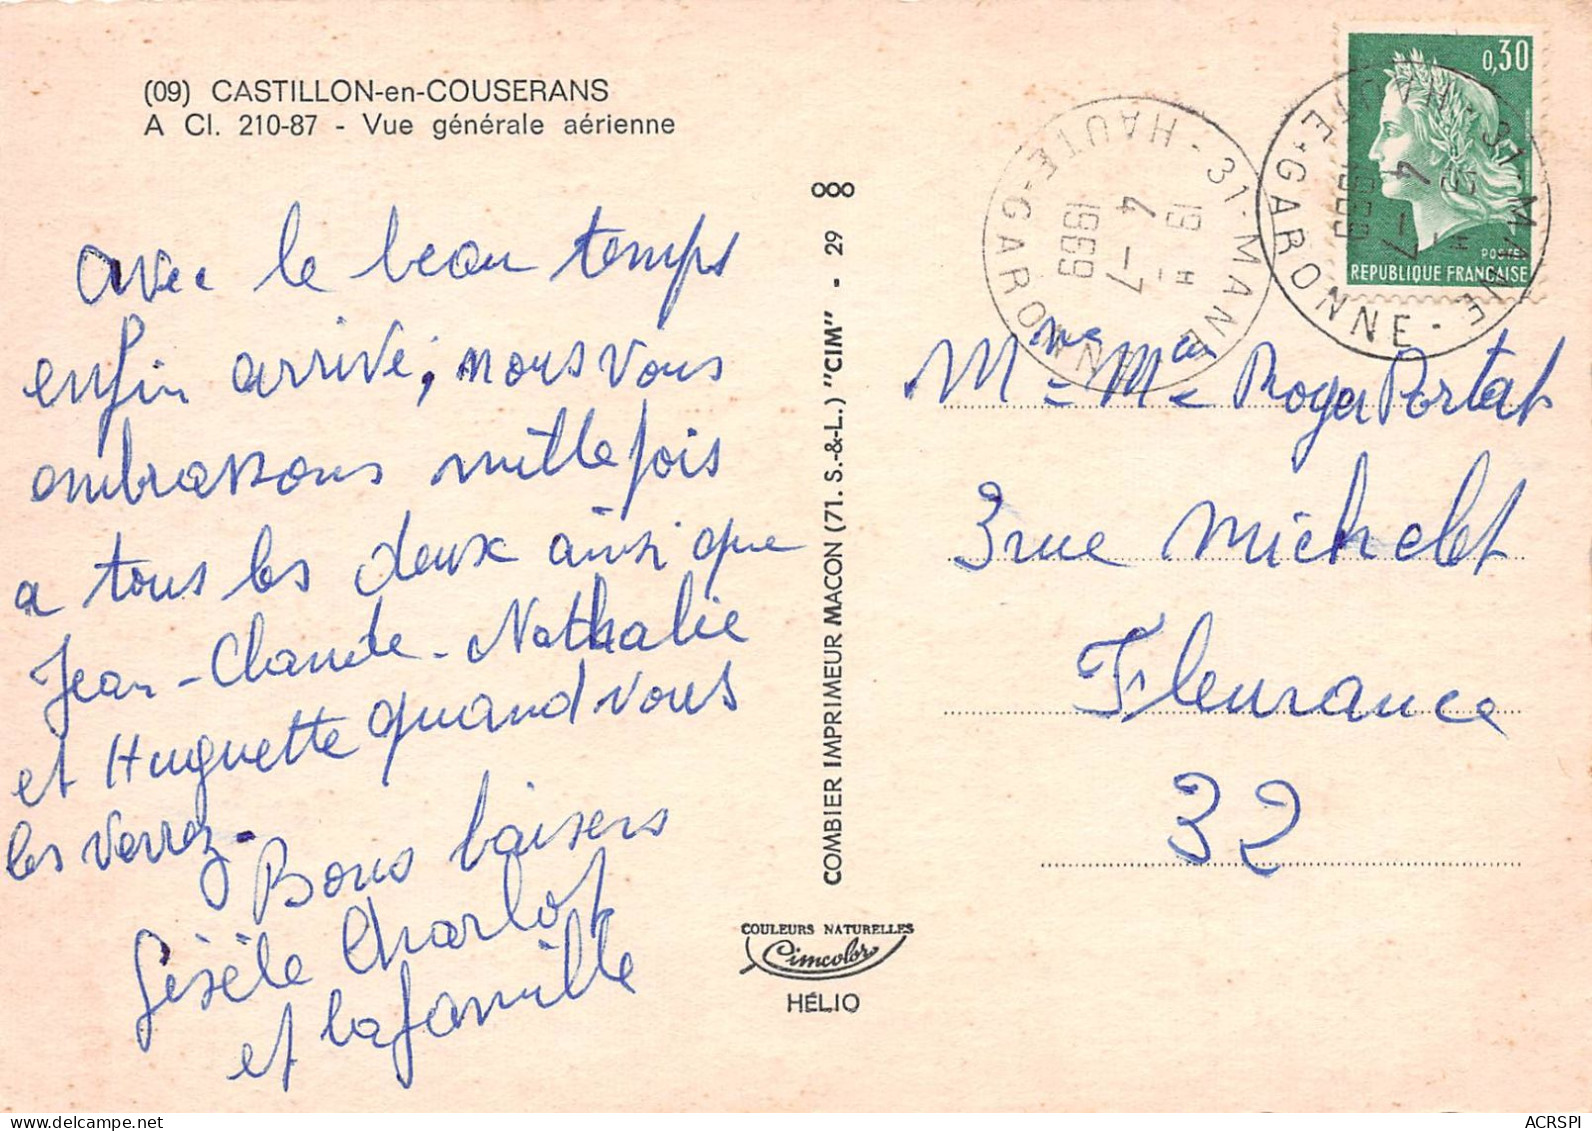 (09) CASTILLON-en-COUSERANS
A Cl. 210-87 - Vue générale aérienne
avec le beau temps
enfin arrivé, nous vous
embrassons mille fois
a tous les deux ainsi que
Jean-Claude - Nathalie
et Huguette quand vous
les verrez.
Bons baisers
Gisèle Charlot
et la famille
COMBIER IMPRIMEUR MACON (71. S.-&-L.) "CIM" - 29
COULEURS NATURELLES
Cimcolor
HÉLIO
31 - MANE
HAUTE-GARONNE
19 H
4 -7
1969
31 - MANE
HAUTE-GARONNE
19 H
4 -7
1969
0,30
POSTES
REPUBLIQUE FRANÇAISE
Roger Portat
3 rue Michelet
Fleurance
32
ACRSPI